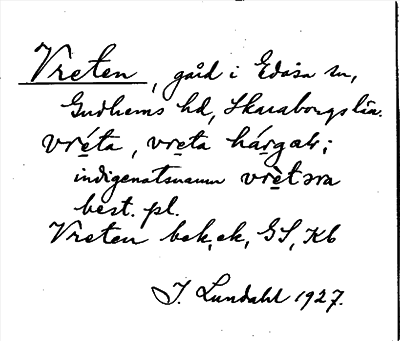 Vreten, gård i Edåsa sn,
Gudhems hd, Skaraborgs län.
vréta, vreta hárgab;
indigenatsnamn vrètəra
best. pl.
Vreten bek, ek, GS, Kb
J. Lundahl 1927.